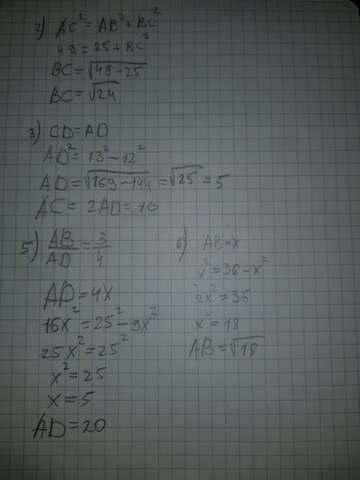 2) AC² = AB² + BC²
49 = 25 + BC²
BC = √49-25
BC = √24
3) CD = AD
AD² = 13² - 12²
AD = √169-144 = √25 = 5
AC = 2AD = 10
5) AB/AD = 3/4
AD = 4x
16x² = 25² - 9x²
25x² = 25²
x² = 25
x = 5
AD = 20
6) AB = x
x² = 36 - x²
2x² = 36
x² = 18
AB = √18